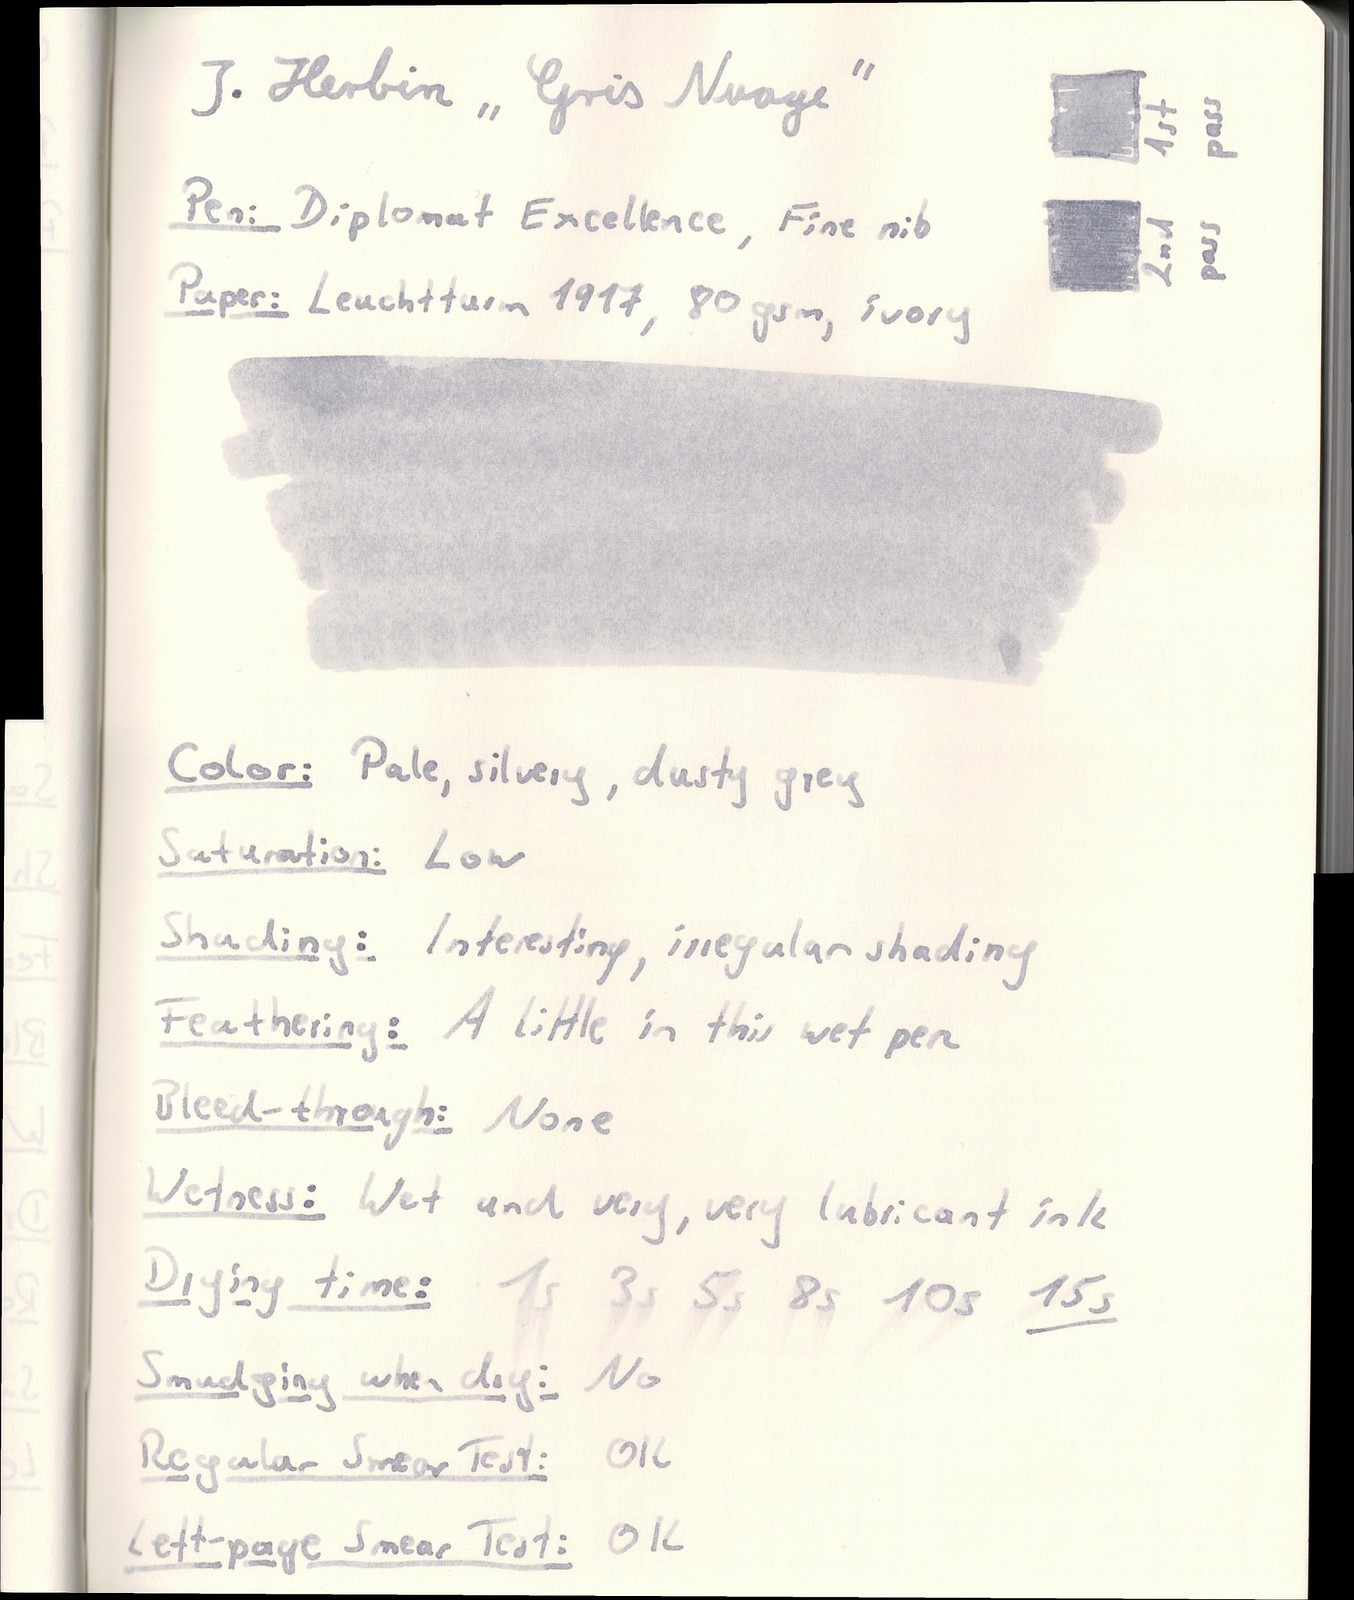 J. Herbin „Gris Nuage"
1st pass
Pen: Diplomat Excellence, Fine nib
2nd pass
Paper: Leuchtturm 1917, 80 gsm, ivory
Color: Pale, silvery, dusty grey
Saturation: Low
Shading: Interesting, irregular shading
Feathering: A little in this wet pen
Bleed-through: None
Wetness: Wet and very, very lubricant ink
Drying time: 1s 3s 5s 8s 10s 15s
Smudging when dry: No
Regular Smear Test: OK
Left-page Smear Test: OK